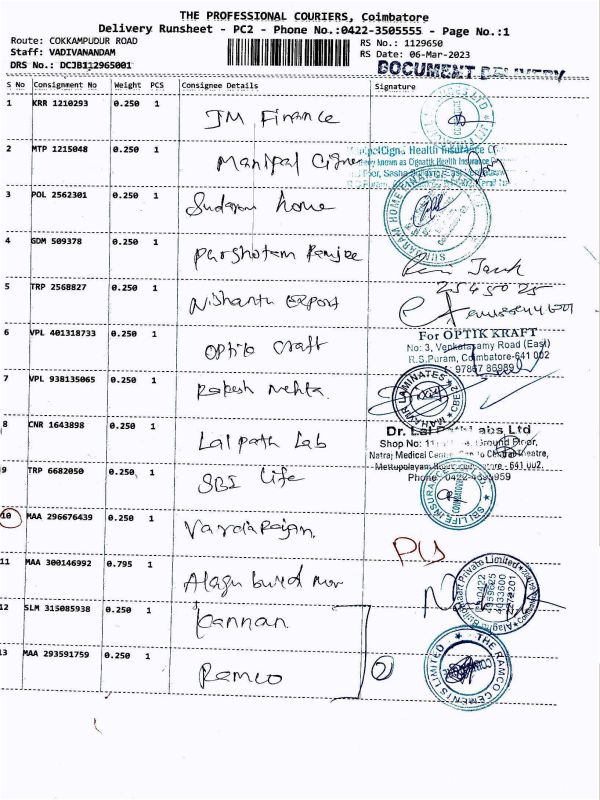 THE PROFESSIONAL COURIERS, Coimbatore
Delivery Runsheet - PC2 - Phone No.:0422-3505555 - Page No.:1
Route: COKKAMPUDUR ROAD
Staff: VADIVANANDAM
DRS No.: DCJB112965001
RS No.: 1129650
RS Date: 06-Mar-2023
DOCUMENT DELIVERY
S No Consignment No Weight PCS Consignee Details Signature
1 KRR 1210293 0.250 1 JM Finance
2 MTP 1215048 0.250 1 Manipal Cigna
Cigna Health Insurance
known as Cignattk Health Insurance
3 POL 2562301 0.250 1 Sundaram home
SUNDARAM HOME FINANCE
4 GDM 509378 0.250 1 Purshotam Ramjee
5 TRP 2568827 0.250 1 Nishanth Export
25450 25
6 VPL 401318733 0.250 1 Optik Craft
For OPTIK KRAFT
No: 3, Venkatasamy Road (East)
R.S.Puram, Coimbatore-641 002
: 97867 86989
7 VPL 938135065 0.250 1 Rakesh Mehta
MAHAVIR LAMINATES CBE-2
8 CNR 1643898 0.250 1 Lal path Lab
Dr. Lal Labs Ltd
Shop No: 11 Ground Floor,
Natraj Medical Centre, Theatre,
Mettupalayam 641 002.
Phone: 0422-4395959
9 TRP 6682050 0.250 1 SBI Life
SBI LIFE INSURANCE
COIMBATORE
10 MAA 296676439 0.250 1 Vardarajan
PLS
11 MAA 300146992 0.795 1 Alagu bured mar
Private Limited
12 SLM 315085938 0.250 1 Kannan
13 MAA 293591759 0.250 1 Ramco
2
THE RAMCO CEMENTS LIMITED